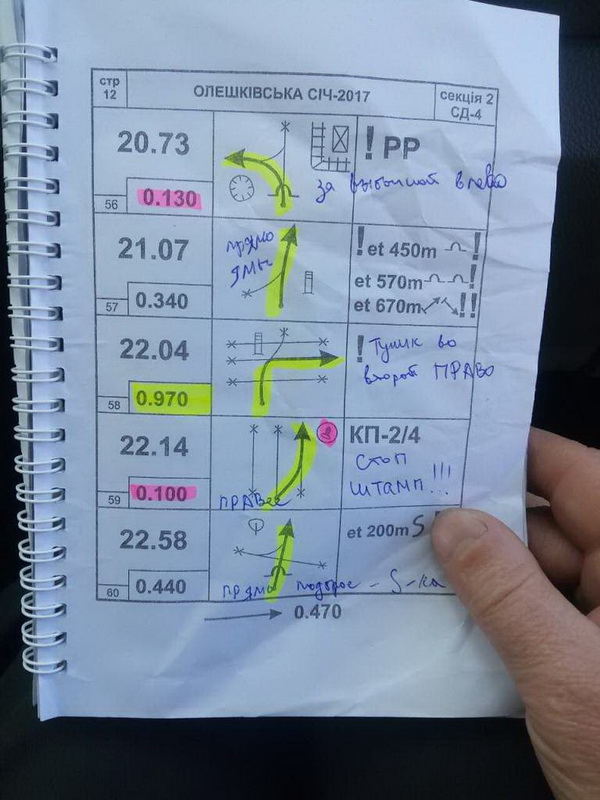 стр 12
ОЛЕШКІВСЬКА СІЧ-2017
секція 2
СД-4
20.73
56
0.130
! PP
за выбоиной влево
21.07
57
0.340
прямо
ямы
! et 450m !
et 570m !
et 670m !!
22.04
58
0.970
! Тупик во
второй ПРАВО
22.14
59
0.100
ПРАВЕЕ
2
КП-2/4
СТОП
ШТАМП!!!
22.58
60
0.440
прямо подъгрос - S-ка
et 200m S
0.470